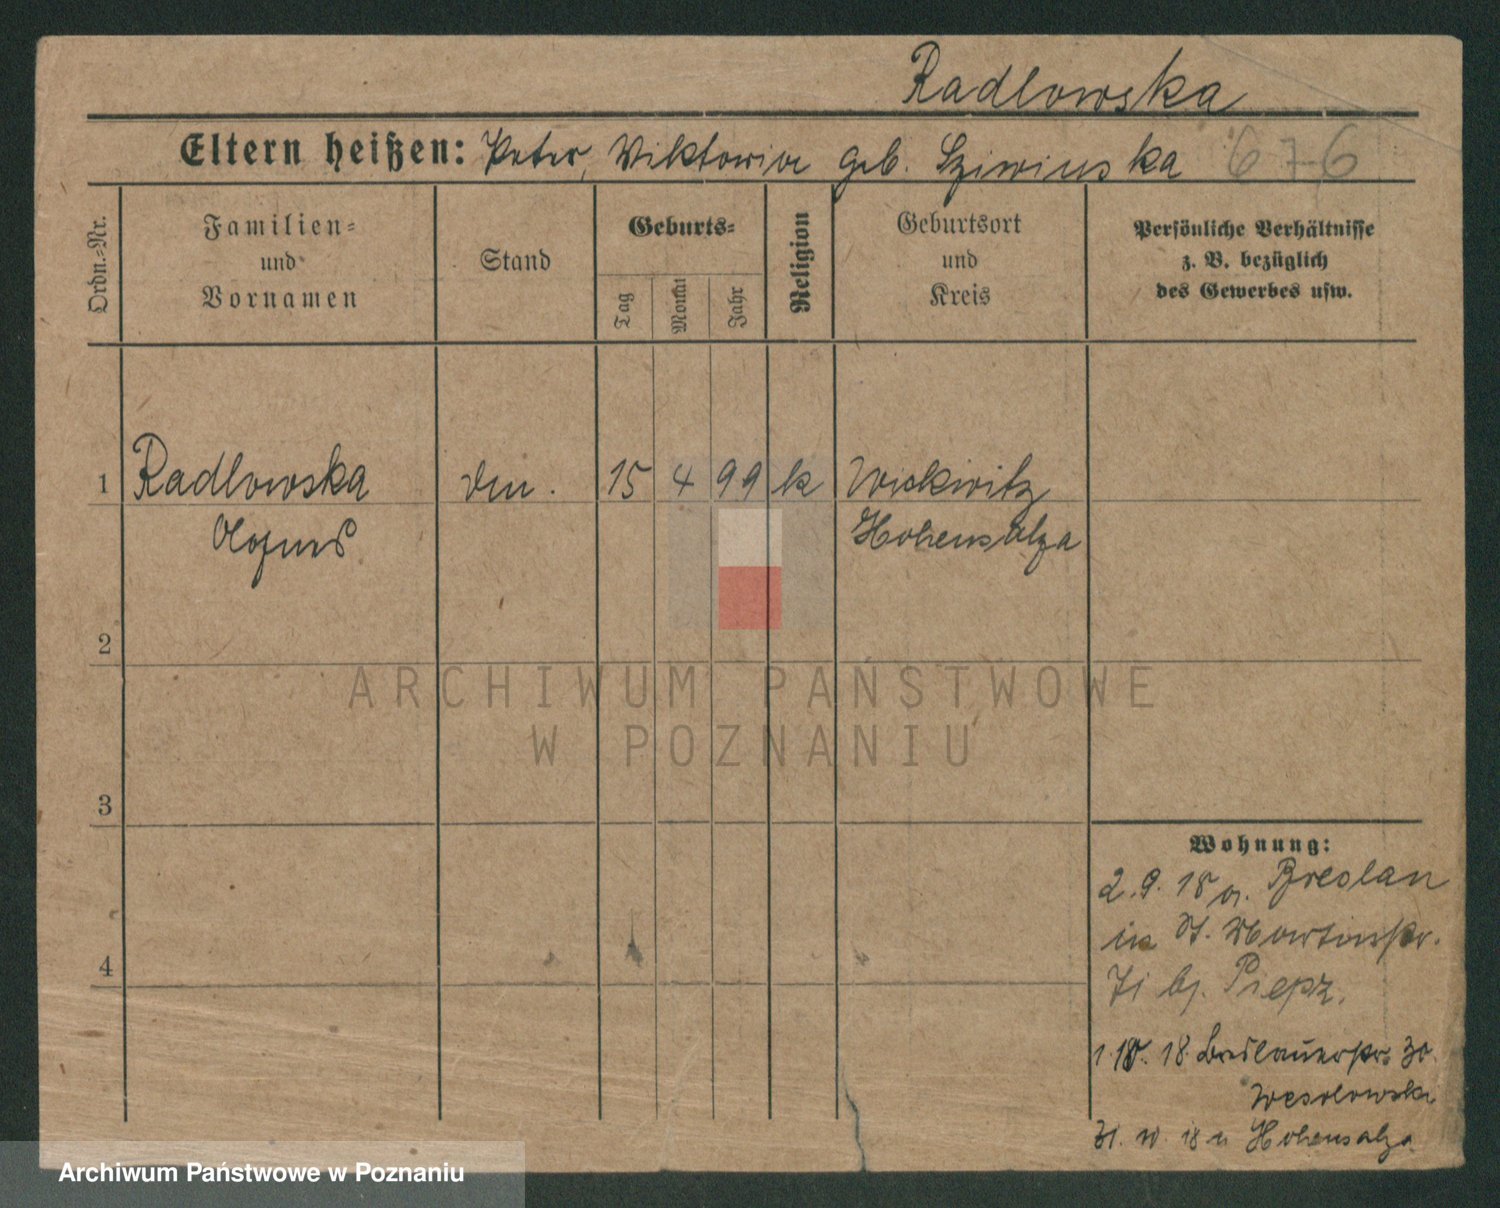 Radlowska
Eltern heißen: Peter, Viktoria geb. Sziwinska 676
Ordn.-Nr.
Familien-
und
Vornamen
Stand
Geburts-
Tag
Monat
Jahr
Religion
Geburtsort
und
Kreis
Persönliche Verhältnisse
z. B. bezüglich
des Gewerbes usw.
1 Radlowska 15 4 99 k Wickwitz
Hohensalza
2
3
4
Wohnung:
2.9.18 a. Breslau
in St. Martinstr.
bj. Piepz.
1.10.18. Breslauerstr. 30.
Wesolowska
31. 10. 18 n Hohensalza
ARCHIWUM PAŃSTWOWE
W POZNANIU
Archiwum Państwowe w Poznaniu